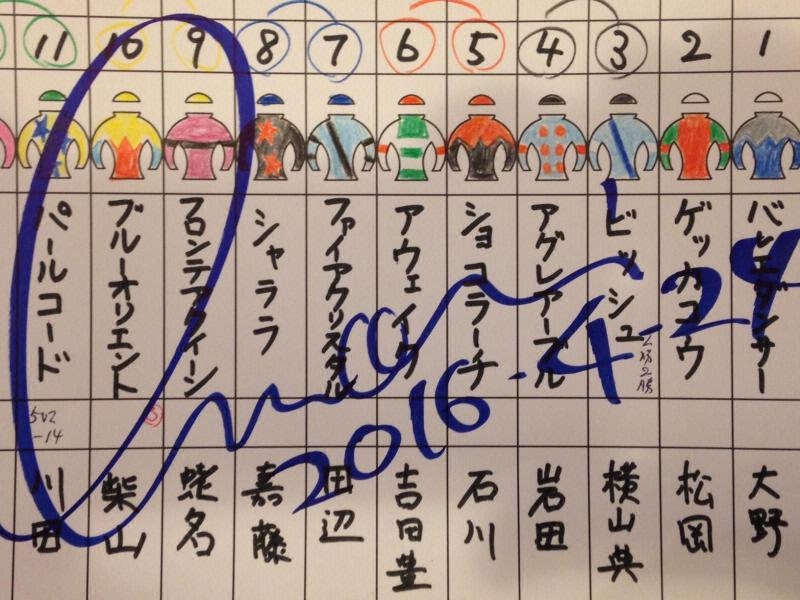 1
バレエダンサー
大野
2
ゲッカコウ
松岡
3
ビッシュ
2勝2勝
横山典
4
アグレアーブル
岩田
5
ショコラーチ
石川
6
アウェイク
吉田豊
7
ファイアクリスタル
田辺
8
シャララ
嘉藤
9
フロンテアクイーン
蛯名
10
ブルーオリエント
柴山
11
パールコード
502
-14
川田
2016-4-24